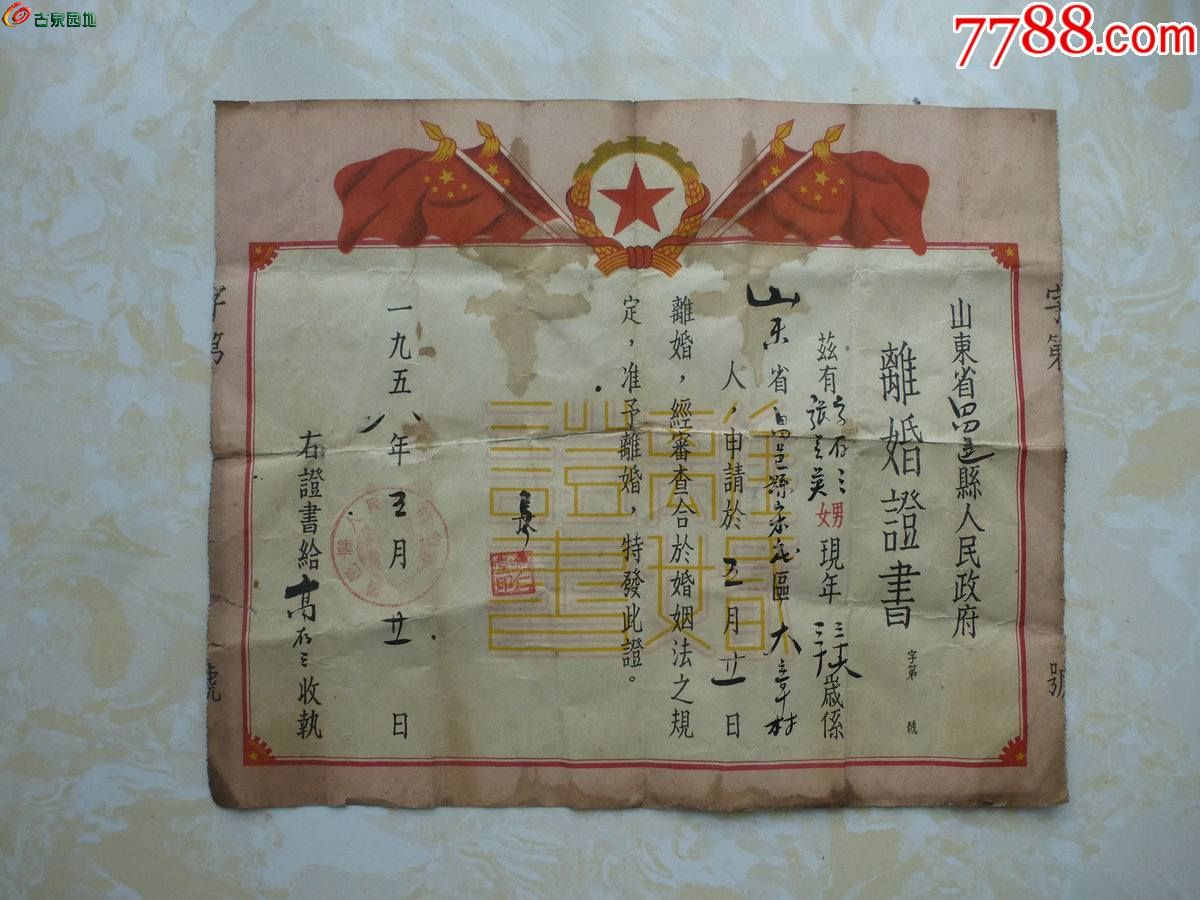 古泉园地
7788.com
山東省昌邑縣人民政府
離婚證書
字第 號
茲有高存三 張 英 男 女 現年 歲係
山東省昌邑縣 區大章村
人，申請於五月廿一日
離婚，經審查合於婚姻法之規
定，准予離婚，特發此證。
離婚證書
一九五八年五月廿一日
右證書給高存三收執
字第 號
字第 號